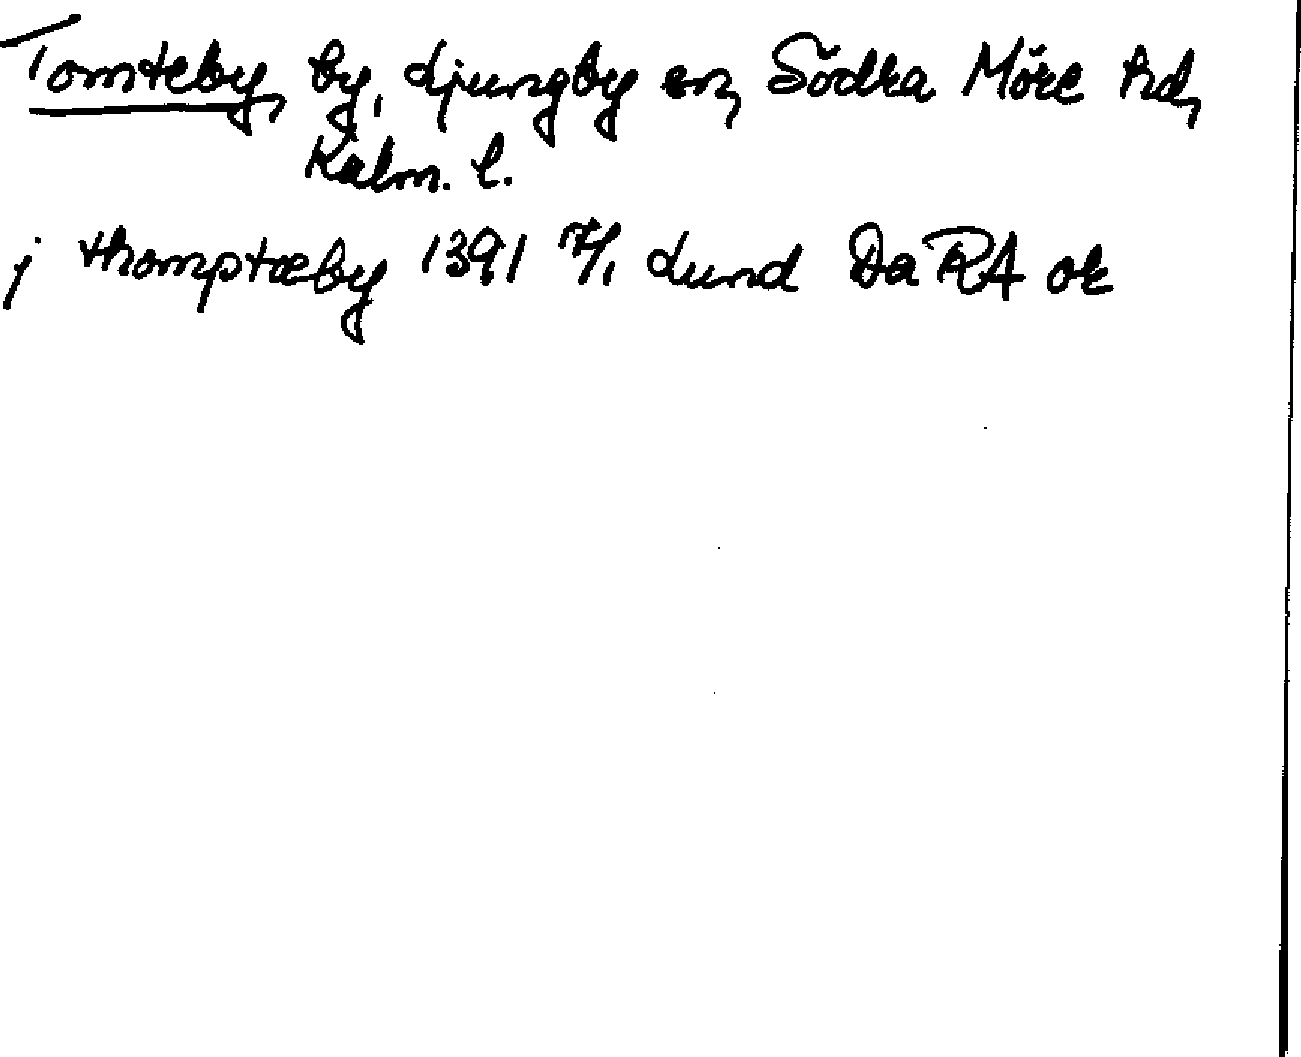 Tomteby, by, Ljungby sn, Södra Möre hd,
Kalm. l.
j thomptæby 1391 7/1 Lund Da RA or